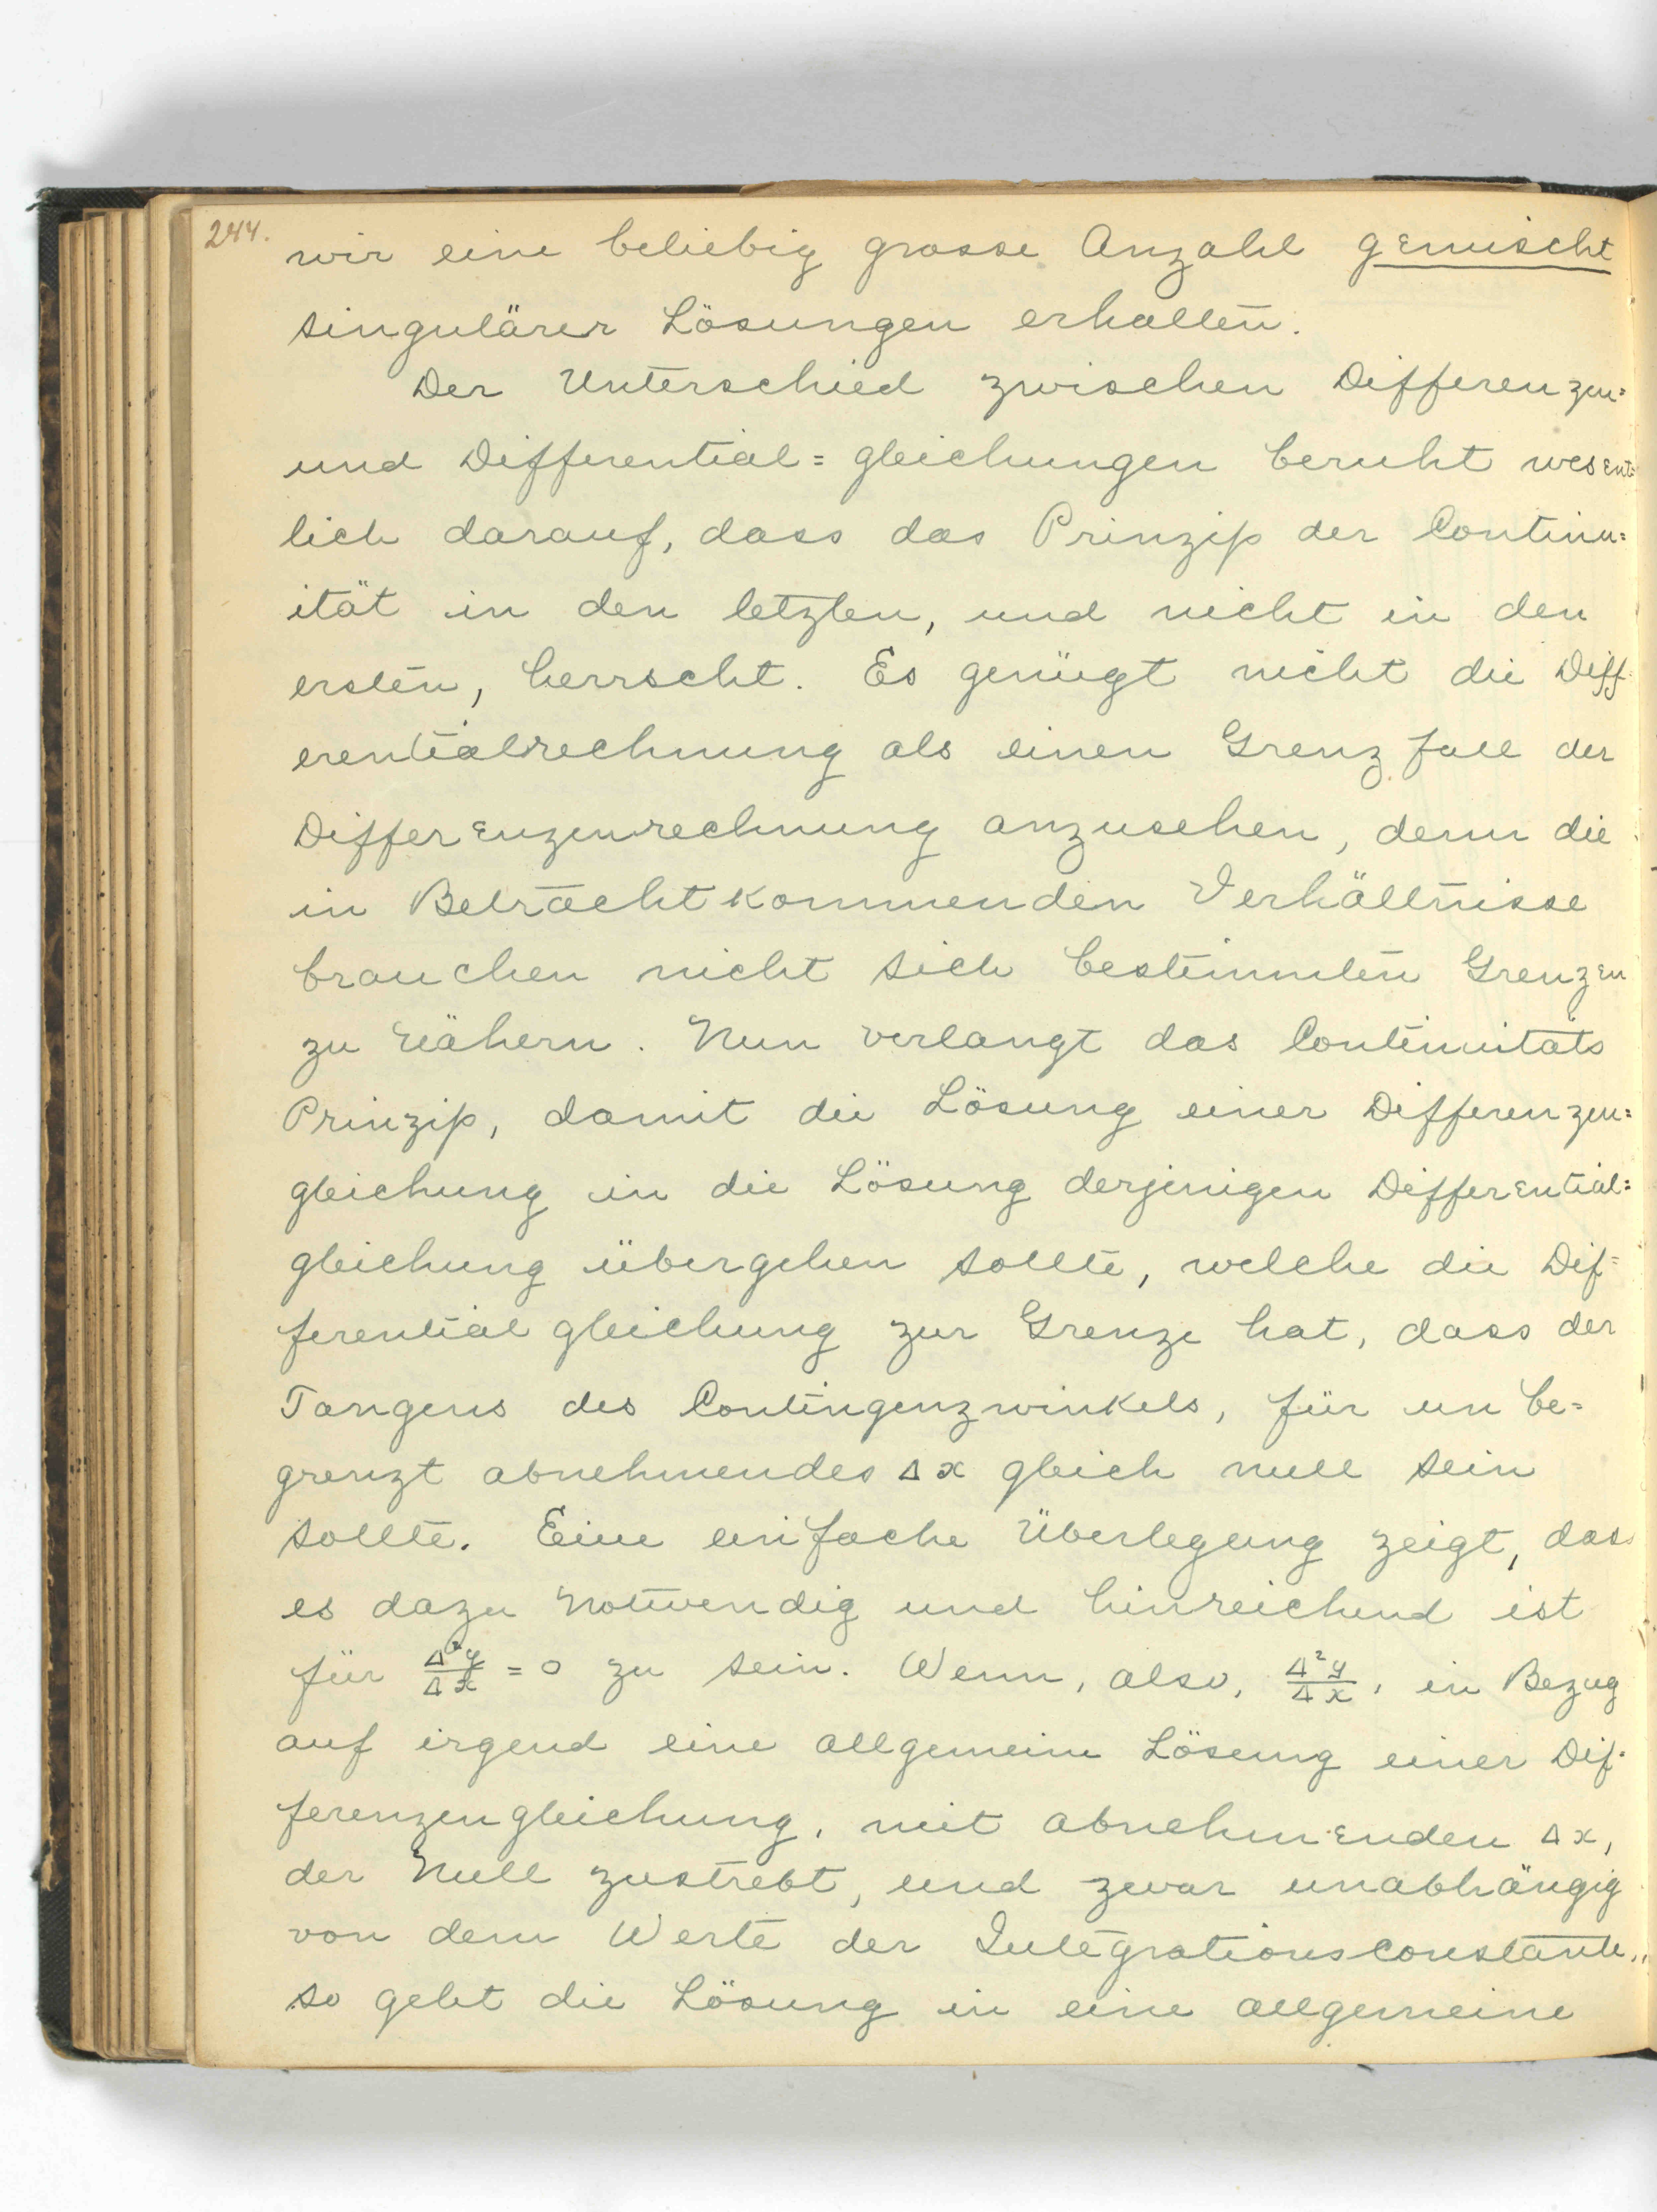 244.
wir eine beliebig grosse Anzahl gemischt
singulärer Lösungen erhalten.
Der Unterschied zwischen Differenzen=
und Differential=gleichungen beruht wesent=
lich darauf, dass das Prinzip der Continu=
ität in den letzten, und nicht in den
ersten, herrscht. Es genügt nicht die Diff=
erentialrechnung als einen Grenzfall der
Differenzenrechnung anzusehen, denn die
in Betracht kommenden Verhältnisse
brauchen nicht sich bestimmten Grenzen
zu nähern. Nun verlangt das Continuitäts
Prinzip, damit die Lösung einer Differenzen=
gleichung in die Lösung derjenigen Differential=
gleichung übergehen sollte, welche die Dif=
ferentialgleichung zur Grenze hat, dass der
Tangens des Contingenzwinkels, für unbe=
grenzt abnehmendes Δx gleich null sein
sollte. Eine einfache Überlegung zeigt, dass
es dazu notwendig und hinreichend ist
für Δ²y/Δx = 0 zu sein. Wenn, also, Δ²y/Δx, in Bezug
auf irgend eine allgemeine Lösung einer Dif=
ferenzengleichung, mit abnehmenden Δx,
der Null zustrebt, und zwar unabhängig
von dem Werte der Integrationsconstante,
so geht die Lösung in eine allgemeine